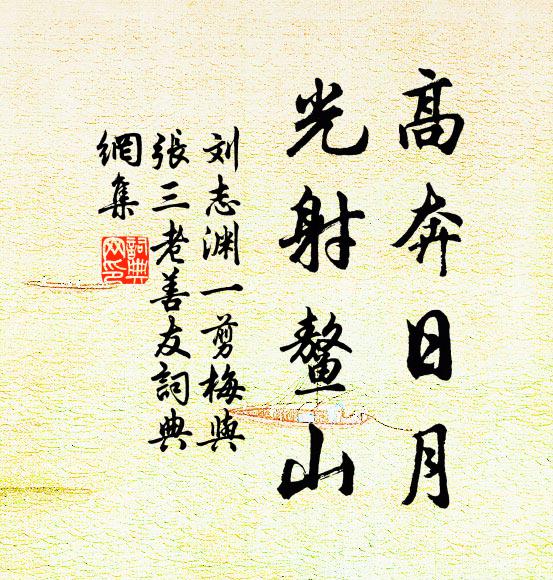 高奔日月
光射鳌山
刘志渊一剪梅與
張三老善友詞典
網集
詞典
网印